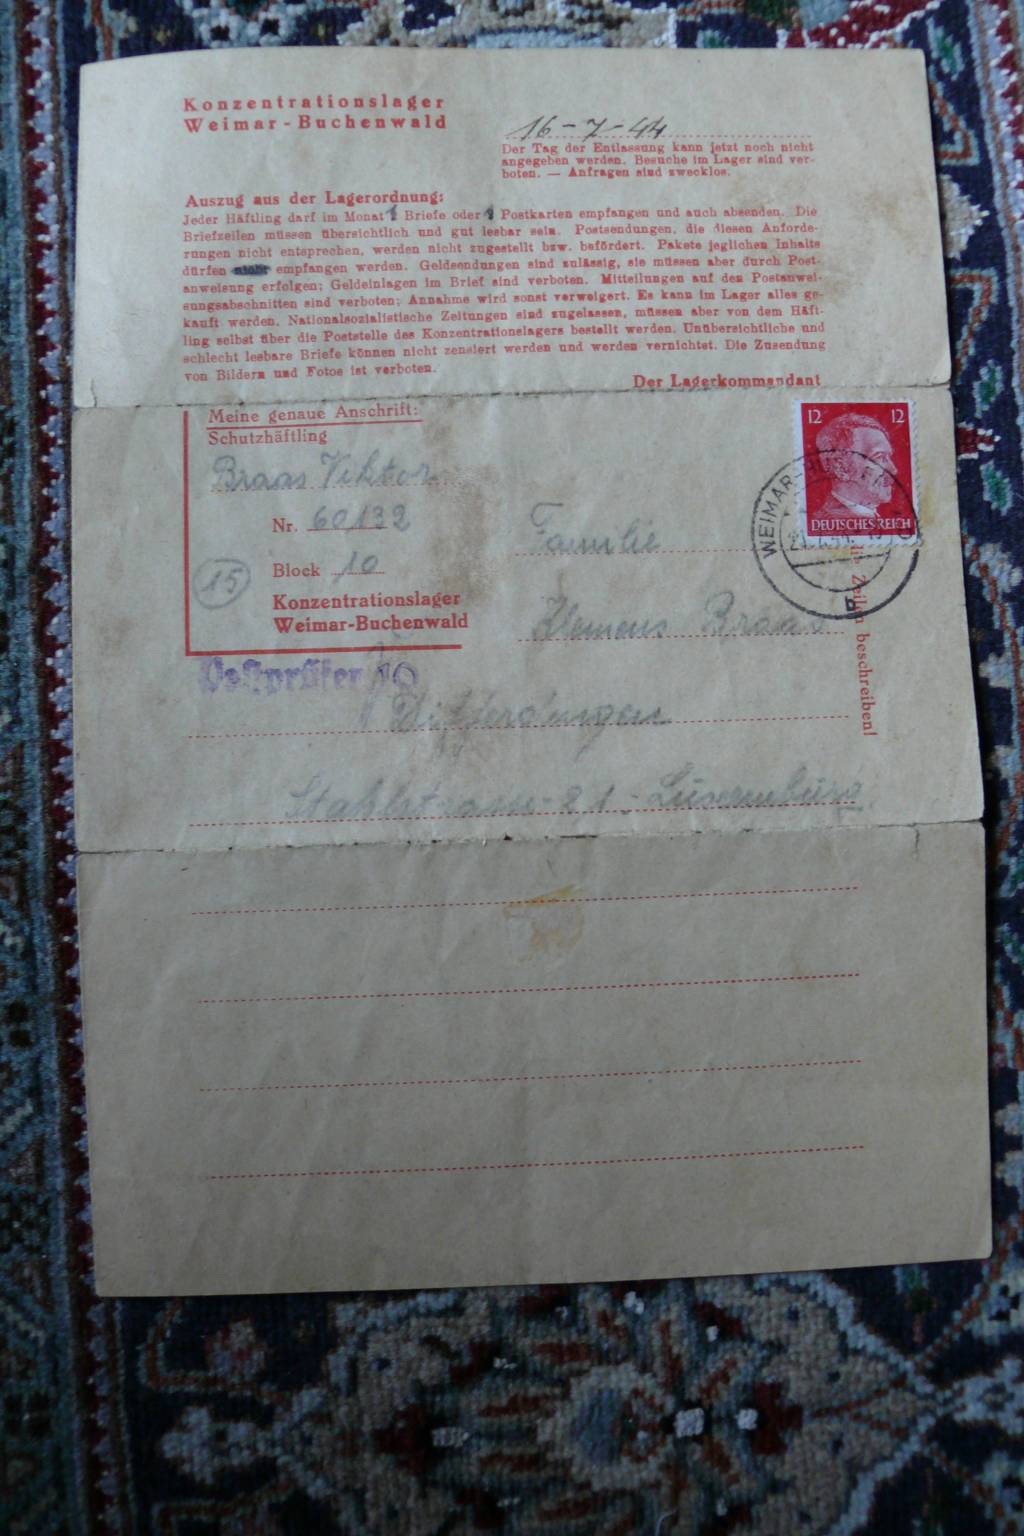 Konzentrationslager
Weimar-Buchenwald
16-7-44
Der Tag der Entlassung kann jetzt noch nicht
angegeben werden. Besuche im Lager sind ver-
boten. — Anfragen sind zwecklos.
Auszug aus der Lagerordnung:
Jeder Häftling darf im Monat 1 Briefe oder 1 Postkarten empfangen und auch absenden. Die
Briefzeilen müssen übersichtlich und gut lesbar sein. Postsendungen, die diesen Anforde-
rungen nicht entsprechen, werden nicht zugestellt bzw. befördert. Pakete jeglichen Inhalts
dürfen nicht empfangen werden. Geldsendungen sind zulässig, sie müssen aber durch Post-
anweisung erfolgen; Geldeinlagen im Brief sind verboten. Mitteilungen auf den Postanwei-
sungsabschnitten sind verboten; Annahme wird sonst verweigert. Es kann im Lager alles ge-
kauft werden. Nationalsozialistische Zeitungen sind zugelassen, müssen aber von dem Häft-
ling selbst über die Poststelle des Konzentrationslagers bestellt werden. Unübersichtliche und
schlecht lesbare Briefe können nicht zensiert werden und werden vernichtet. Die Zusendung
von Bildern und Fotos ist verboten.
Der Lagerkommandant
Meine genaue Anschrift:
Schutzhäftling
Braas Viktor
Nr. 60132
Block 10
15
Konzentrationslager
Weimar-Buchenwald
Postprüfer 10
12 12
DEUTSCHES REICH
WEIMAR-BUCHENWALD
Familie
Klemens Braas
Differdingen
Stahlstrasse-21-Luxemburg
die Zeilen beschreiben!